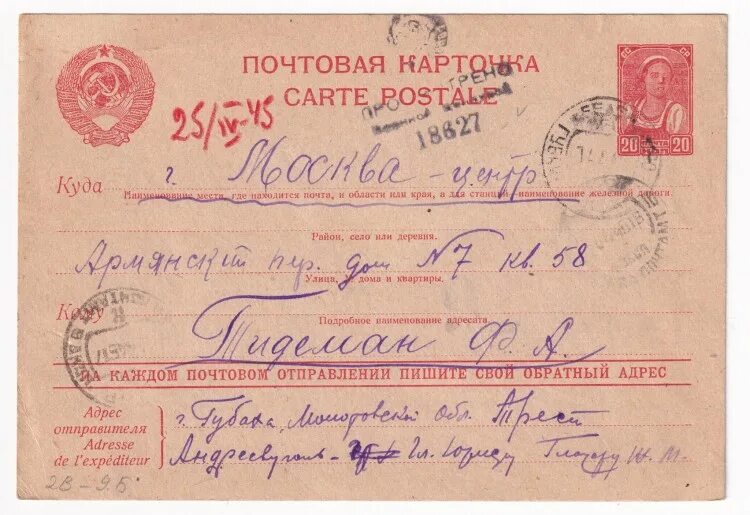 ПОЧТОВАЯ КАРТОЧКА
CARTE POSTALE
25/IV-45
ПРО ТРЕНО
Военной
18627
20 20
Куда
г. Москва - центр
Наименование места, где находится почта, и области или края, а для станций наименование железной дороги.
Район, село или деревня.
Армянский пер. дом N 7 кв. 58
Улица, № дома и квартиры.
Кому
Подробное наименование адресата.
Тидеман Ф. А.
НА КАЖДОМ ПОЧТОВОМ ОТПРАВЛЕНИИ ПИШИТЕ СВОЙ ОБРАТНЫЙ АДРЕС
Адрес отправителя
Adresse de l'expéditeur
г. Губаха, Молотовской обл. Трест
Андреевуголь - Гл. Юрису М. М.
2В - 9Б